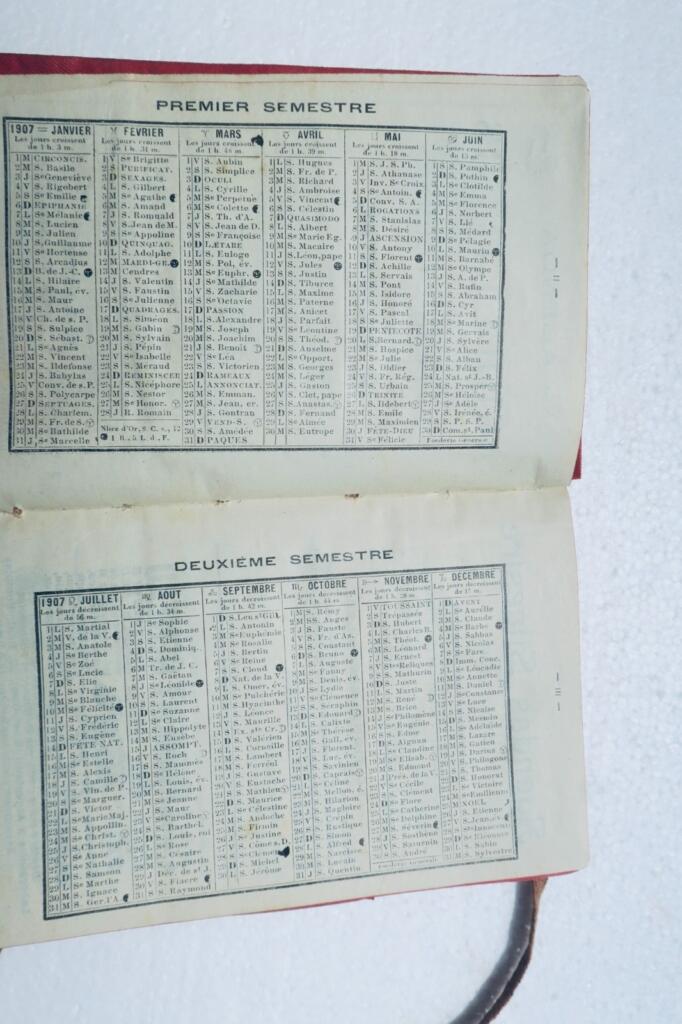 PREMIER SEMESTRE
1907 JANVIER
Les jours croissent
de 1 h. 3 m.
1 M CIRCONCIS.
2 M S. Basile
3 J Se Geneviève
4 V S. Rigobert
5 S Se Emilie
6 D EPIPHANIE
7 L Se Mélanie
8 M S. Lucien
9 M S. Julien
10 J S. Guillaume
11 V Se Hortense
12 S S. Arcadius
13 D B. de J.-C.
14 L S. Hilaire
15 M S. Paul, év.
16 M S. Maur
17 J S. Antoine
18 V Ch. de s. P.
19 S S. Sulpice
20 D S. Sébast.
21 L Se Agnès
22 M S. Vincent
23 M S. Ildefonse
24 J S. Babylas
25 V Conv. de s. P.
26 S Se Polycarpe
27 D SEPTUAGES.
28 L S. Charlem.
29 M S. Fr. de S.
30 M Se Bathilde
31 J Se Marcelle
FEVRIER
Les jours croissent
de 1 h. 31 m.
1 V Se Brigitte
2 S PURIFICAT.
3 D SEXAGES.
4 L S. Gilbert
5 M Se Agathe
6 M S. Amand
7 J S. Romuald
8 V S. Jean de M.
9 S Se Appoline
10 D QUINQUAG.
11 L S. Adolphe
12 M MARDI-GR.
13 M Cendres
14 J S. Valentin
15 V S. Faustin
16 S Se Julienne
17 D QUADRAGES.
18 L S. Siméon
19 M S. Gabin
20 M S. Sylvain
21 J S. Pépin
22 V Se Isabelle
23 S S. Méraud
24 D REMINISCER
25 L S. Nicéphore
26 M S. Nestor
27 M Se Honor.
28 J S. Romain
Nbre d'Or, 8, C. s., 17
I. R., 5, L. d., F.
MARS
Les jours croissent
de 1 h. 48 m.
1 V S. Aubin
2 S S. Simplice
3 D OCULI
4 L S. Cyrille
5 M Se Perpétue
6 M Se Colette
7 J S. Th. d'A.
8 V S. Jean de D.
9 S Se Françoise
10 D LÆTARE
11 L S. Euloge
12 M S. Pol, év.
13 M Se Euphr.
14 J Se Mathilde
15 V S. Zacharie
16 S Se Octavie
17 D PASSION
18 L S. Alexandre
19 M S. Joseph
20 M S. Joachim
21 J S. Benoit
22 V Se Léa
23 S S. Victorien
24 D RAMEAUX
25 L ANNONCIAT.
26 M S. Emman.
27 M S. Jean, er.
28 J S. Gontran
29 V VEND-S.
30 S S. Amédée
31 D PAQUES
AVRIL
Les jours croissent
de 1 h. 39 m.
1 L S. Hugues
2 M S. Fr. de P.
3 M S. Richard
4 J S. Ambroise
5 V S. Vincent
6 S S. Célestin
7 D QUASIMODO
8 L S. Albert
9 M Se Marie Eg.
10 M S. Macaire
11 J S. Léon, pape
12 V S. Jules
13 S S. Justin
14 D S. Tiburce
15 L S. Maxime
16 M S. Paterne
17 M S. Anicet
18 J S. Parfait
19 V S. Léontine
20 S S. Théod.
21 D S. Anselme
22 L Se Opport.
23 M S. Georges
24 M S. Léger
25 J S. Gaston
26 V S. Clet, pape
27 S S. Anastas.
28 D S. Fernand
29 L Se Aimée
30 M S. Eutrope
MAI
Les jours croissent
de 1 h. 18 m.
1 M S. J. S. Ph.
2 J S. Athanase
3 V Inv. Se Croix
4 S S. Antoin.
5 D Conv. S. A.
6 L ROGATIONS
7 M S. Stanislas
8 M S. Désiré
9 J ASCENSION
10 V S. Antony
11 S S. Florent
12 D S. Achille
13 L S. Servais
14 M S. Pont
15 M S. Isidore
16 J S. Honoré
17 V S. Pascal
18 S Se Juliette
19 D PENTECOTE
20 L S. Bernard.
21 M S. Hospice
22 M Se Julie
23 J S. Didier
24 V S. Fr. Rég.
25 S S. Urbain
26 D TRINITÉ
27 L S. Hdebert
28 M S. Emile
29 M S. Maximien
30 J FÊTE-DIEU
31 V Se Félicie
JUIN
Les jours croissent
de 15 m.
1 S S. Pamphile
2 D S. Pothin
3 L Se Clotilde
4 M Se Emma
5 M Se Florence
6 J S. Norbert
7 V S. Lié
8 S S. Médard
9 D Se Pélagie
10 L S. Maurin
11 M S. Barnabé
12 M Se Olympe
13 J S. A. de P.
14 V S. Rufin
15 S S. Abraham
16 D S. Cyr
17 L S. Avit
18 M Se Marine
19 M S. Gervais
20 J S. Sylvère
21 V Se Alice
22 S S. Alban
23 D S. Félix
24 L Nat. s. J.-B.
25 M S. Prosper
26 M Se Héloïse
27 J Se Adèle
28 V S. Irénée, é.
29 S S. P. S. P.
30 D Com. st. Paul
— II —
DEUXIÈME SEMESTRE
1907 JUILLET
Les jours décroissent
de 56 m.
1 L S. Martial
2 M V. de la V.
3 M S. Anatole
4 J Se Berthe
5 V Se Zoé
6 S Se Lucie
7 D S. Elie
8 L Se Virginie
9 M Se Blanche
10 M Se Félicité
11 J S. Cyprien
12 V S. Frédéric
13 S S. Eugène
14 D FÊTE NAT.
15 L S. Henri
16 M Se Estelle
17 M S. Alexis
18 J S. Camille
19 V S. Vin. de P.
20 S Se Marguer.
21 D S. Victor
22 L Se Marie Maj.
23 M S. Appollin.
24 M Se Christ.
25 J S. Christoph.
26 V Se Anne
27 S Se Nathalie
28 D S. Samson
29 L Se Marthe
30 M S. Ignace
31 M S. Ger. l'A.
AOUT
Les jours décroissent
de 1 h. 34 m.
1 J Se Sophie
2 V S. Alphonse
3 S S. Etienne
4 D S. Dominiq.
5 L S. Abel
6 M Tr. de J. C.
7 M S. Gaëtan
8 J Se Léonide
9 V S. Amour
10 S S. Laurent
11 D Se Suzanne
12 L Se Claire
13 M S. Hippolyte
14 M S. Eusèbe
15 J ASSOMPT.
16 V S. Roch
17 S S. Mammès
18 D Se Hélène
19 L S. Louis, év.
20 M S. Bernard
21 M Se Jeanne
22 J S. Maur
23 V Se Caroline
24 S S. Barthél.
25 D S. Louis, roi
26 L Se Rose
27 M S. Césaire
28 M S. Augustin
29 J Déc. de st J.
30 V S. Fiacre
31 S S. Raymond
SEPTEMBRE
Les jours décroissent
de 1 h. 42 m.
1 D S. Leu st Gil.
2 L S. Antonin
3 M Se Euphémie
4 M Se Rosalie
5 J S. Bertin
6 V Se Reine
7 S S. Cloud
8 D Nat. de la V.
9 L S. Omer, év.
10 M Se Pulchérie
11 M S. Hyacinthe
12 J S. Léonce
13 V S. Maurille
14 S Ex. ste Cr.
15 D S. Valérien
16 L S. Corneille
17 M S. Lambert
18 M S. Ferréol
19 J S. Gustave
20 V S. Eustache
21 S S. Mathieu
22 D S. Maurice
23 L Se Célestine
24 M S. Andoche
25 M S. Firmin
26 J Se Justine
27 V S. Côme s. D.
28 S Se Clément
29 D S. Michel
30 L S. Jérôme
OCTOBRE
Les jours décroissent
de 1 h. 44 m.
1 M S. Rémy
2 M SS. Anges
3 J S. Fauste
4 V S. Fr. d'As.
5 S S. Constant
6 D S. Bruno
7 L S. Auguste
8 M S. Fauny
9 M S. Denis, év.
10 J Se Lydie
11 V Se Clémence
12 S S. Séraphin
13 D S. Edouard
14 L S. Calixte
15 M Se Thérèse
16 M S. Gall, év.
17 J S. Florent.
18 V S. Luc, év.
19 S S. Savinien
20 D S. Caprais
21 L Se Céline
22 M S. Mellon, é.
23 M S. Hilarion
24 J S. Magloire
25 V S. Crépin
26 S S. Rustique
27 D S. Simon
28 L S. Alfred
29 M S. Narcisse
30 M S. Lucain
31 J S. Quentin
NOVEMBRE
Les jours décroissent
de 1 h. 20 m.
1 V TOUSSAINT
2 S Trépassés
3 D S. Hubert
4 L S. Charles B.
5 M S. Théot.
6 M S. Léonard
7 J S. Ernest
8 V Stes Reliques
9 S S. Mathurin
10 D S. Juste
11 L S. Martin
12 M S. René
13 M S. Brice
14 J Se Philomène
15 V Se Eugénie
16 S S. Edme
17 D S. Aignan
18 L Se Claudine
19 M Se Elisab.
20 M S. Edmond
21 J Prés. de la V.
22 V Se Cécile
23 S S. Clément
24 D Se Flore
25 L Se Catherine
26 M Se Delphine
27 M S. Séverin
28 J S. Sosthène
29 V S. Saturnin
30 S S. André
DECEMBRE
Les jours décroissent
de 17 m.
1 D AVENT
2 L Se Aurélie
3 M S. Claude
4 M Se Barbe
5 J S. Sabbas
6 V S. Nicolas
7 S Se Fare
8 D Imm. Conc.
9 L Se Léocadie
10 M Se Annette
11 M S. Daniel
12 J Se Constance
13 V Se Luce
14 S S. Nicaise
15 D S. Mesmin
16 L Se Adélaïde
17 M S. Lazare
18 M S. Gatien
19 J S. Darius
20 V S. Philogone
21 S S. Thomas
22 D S. Honorat
23 L Se Victoire
24 M Se Emilienne
25 M NOEL
26 J S. Etienne
27 V S. Jean, év.
28 S Sts Innocents
29 D Se Eléonore
30 L S. Sabin
31 M S. Sylvestre
— III —